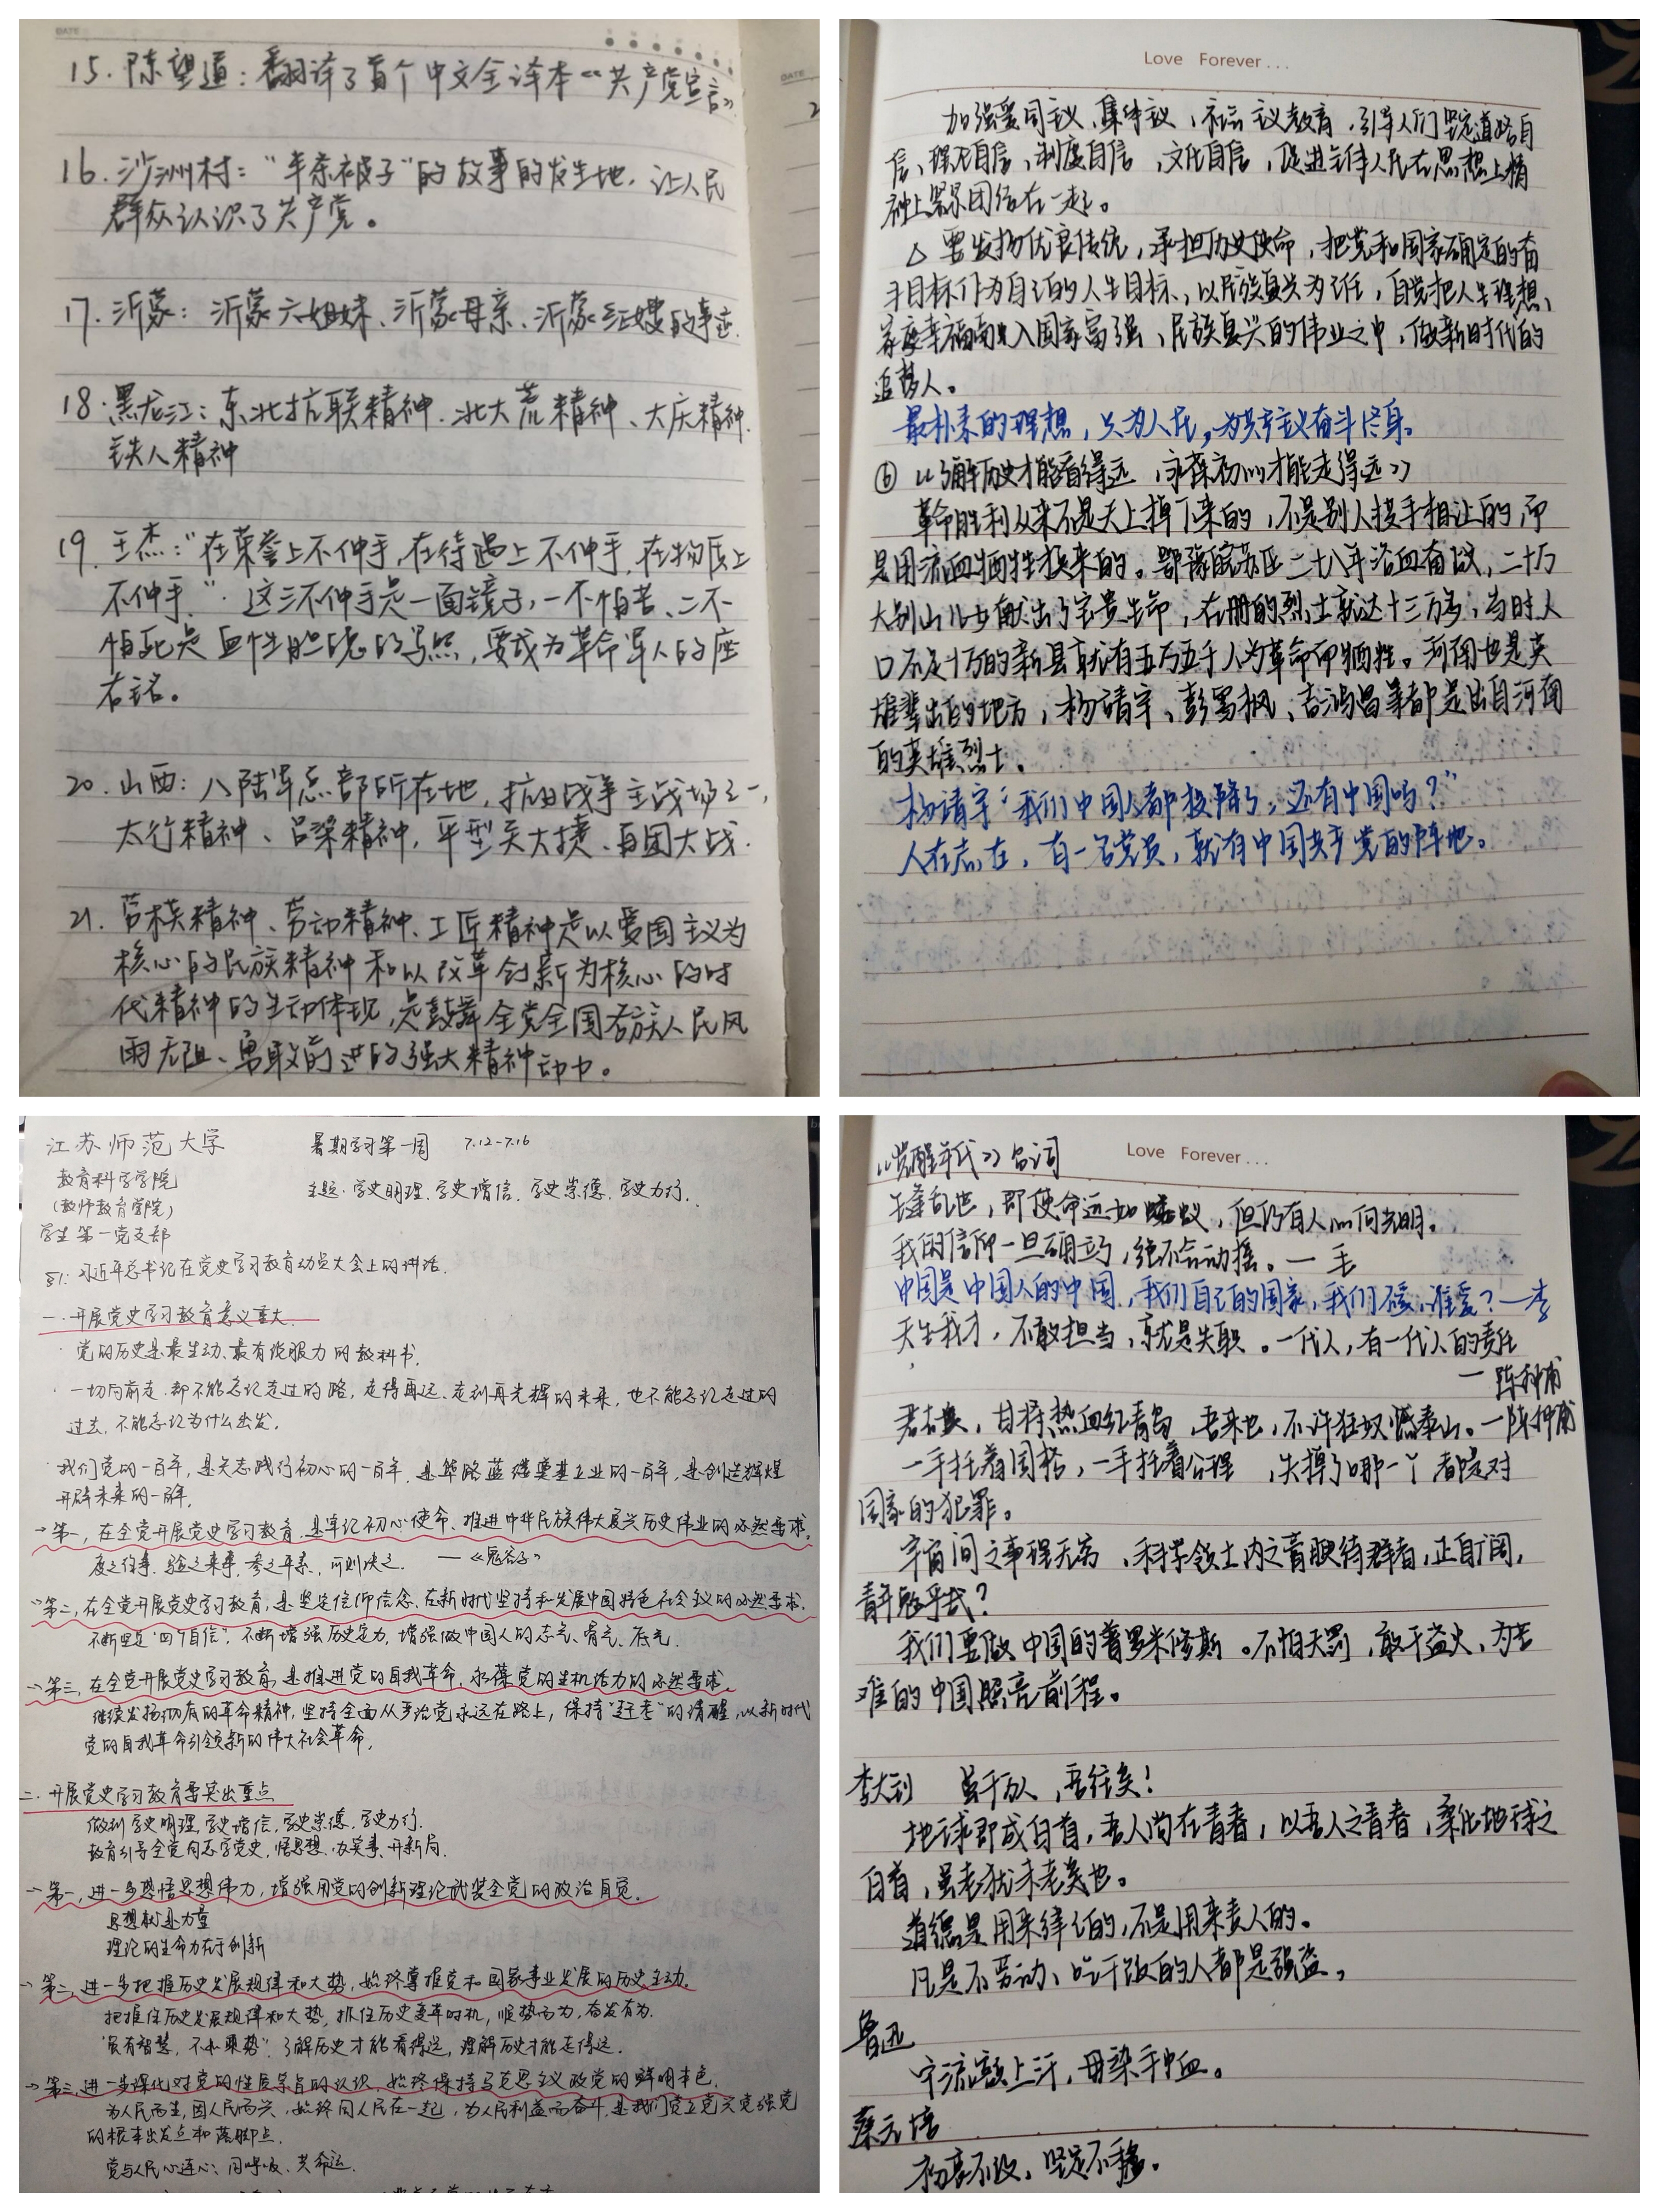 DATE
15. 陈望道：翻译了首个中文全译本《共产党宣言》
16. 沙洲村："半条被子"的故事的发生地，让人民
群众认识了共产党。
17. 沂蒙：沂蒙六姐妹、沂蒙母亲、沂蒙红嫂的事迹.
18. 黑龙江：东北抗联精神.北大荒精神、大庆精神.
铁人精神
19. 王杰："在荣誉上不伸手,在待遇上不伸手,在物质上
不伸手."这三不伸手是一面镜子,一不怕苦、二不
怕死是血性胆魄的写照,要成为革命军人的座
右铭。
20. 山西：八陆军总部所在地,抗日战争主战场之一,
太行精神、吕梁精神,平型关大捷、百团大战.
21. 劳模精神、劳动精神、工匠精神是以爱国主义为
核心的民族精神和以改革创新为核心的时
代精神的生动体现,是鼓舞全党全国各族人民风
雨无阻、勇敢前进的强大精神动力。
DATE
Love Forever...
加强爱国主义、集体主义、社会主义教育,引导人们坚定道路自
信、理论自信、制度自信、文化自信,促进全体人民在思想上精
神上紧紧团结在一起。
△ 要发扬优良传统,承担历史使命,把党和国家确定的奋
斗目标作为自己的人生目标,以民族复兴为己任,自觉把人生理想、
家庭幸福融入国家富强、民族复兴的伟业之中,做新时代的
追梦人。
最朴素的理想,只为人民,为共产主义奋斗终身。
⑥《了解历史才能看得远,永葆初心才能走得远》
革命胜利从来不是天上掉下来的,不是别人拱手相让的,而
是用流血牺牲换来的。鄂豫皖苏区二十八年浴血奋战,二十万
大别山儿女献出了宝贵生命,在册的烈士就达十三万多,当时人
口不足十万的新县就有五万五千人为革命而牺牲。河南也是英
雄辈出的地方,杨靖宇、彭雪枫、吉鸿昌等都是出自河南
的英雄烈士。
杨靖宇"我们中国人都投降了,还有中国吗?"
人在志在,有一名党员,就有中国共产党的阵地。
江苏师范大学 暑期学习第一周 7.12-7.16
教育科学学院 主题:学史明理.学史增信.学史崇德.学史力行.
(教师教育学院)
学生第一党支部
习近平总书记在党史学习教育动员大会上的讲话.
一.开展党史学习教育意义重大.
·党的历史是最生动、最有说服力的教科书.
·一切向前走.都不能忘记走过的路,走得再远、走到再光辉的未来,也不能忘记走过的
过去,不能忘记为什么出发.
·我们党的一百年,是矢志践行初心的一百年,是筚路蓝缕奠基立业的一百年,是创造辉煌
开辟未来的一百年.
→第一,在全党开展党史学习教育.是牢记初心使命、推进中华民族伟大复兴历史伟业的必然要求.
度之往事,验之来事,参之平素,可则决之. ——《鬼谷子》
→第二,在全党开展党史学习教育,是坚定信仰信念、在新时代坚持和发展中国特色社会主义的必然要求.
不断坚定"四个自信",不断增强历史定力,增强做中国人的志气、骨气、底气.
→第三,在全党开展党史学习教育,是推进党的自我革命,永葆党的生机活力的必然要求.
继续发扬彻底的革命精神,坚持全面从严治党永远在路上,保持"赶考"的清醒,以新时代
党的自我革命引领新的伟大社会革命.
二.开展党史学习教育要突出重点
做到学史明理,学史增信,学史崇德,学史力行.
教育引导全党同志学党史,悟思想,办实事,开新局.
→第一,进一步感悟思想伟力,增强用党的创新理论武装全党的政治自觉.
思想就是力量
理论的生命力在于创新
→第二,进一步把握历史发展规律和大势,始终掌握党和国家事业发展的历史主动.
把握住历史发展规律和大势,抓住历史变革时机,顺势而为,奋发有为.
"虽有智慧,不如乘势".了解历史才能看得远,理解历史才能走得远.
→第三,进一步深化对党的性质宗旨的认识,始终保持马克思主义政党的鲜明本色.
为人民而生,因人民而兴,始终同人民在一起,为人民利益而奋斗,是我们党立党兴党强党
的根本出发点和落脚点.
党与人民心连心、同呼吸、共命运.
《觉醒年代》台词 Love Forever...
生逢乱世,即使命运如蝼蚁,但仍有人心向光明。
我的信仰一旦确立了,绝不会动摇。—毛
中国是中国人的中国,我们自己的国家,我们不爱,谁爱?—李
天生我才,不敢担当,就是失职。一代人,有一代人的责任
—陈仲甫
若木失,甘将热血红青岛,吾来也,不许狂奴撼泰山。—陈仲甫
一手托着国格,一手托着公理,失掉了哪一个都是对
国家的犯罪。
宇宙间之事理无穷,科学领土内之膏腴待辟者,正自广阔,
青年勉乎哉?
我们要做中国的普罗米修斯。不怕天罚,敢于盗火,为苦
难的中国照亮前程。
李大钊 虽千万人,吾往矣!
地球即成白首,吾人尚在青春,以吾人之青春,柔化地球之
白首,虽老犹未老矣也。
道德是用来律己的,不是用来责人的。
凡是不劳动、吃干饭的人都是强盗,
鲁迅
宁流额上汗,毋染手中血。
蔡元培
初衷不改、坚定不移。